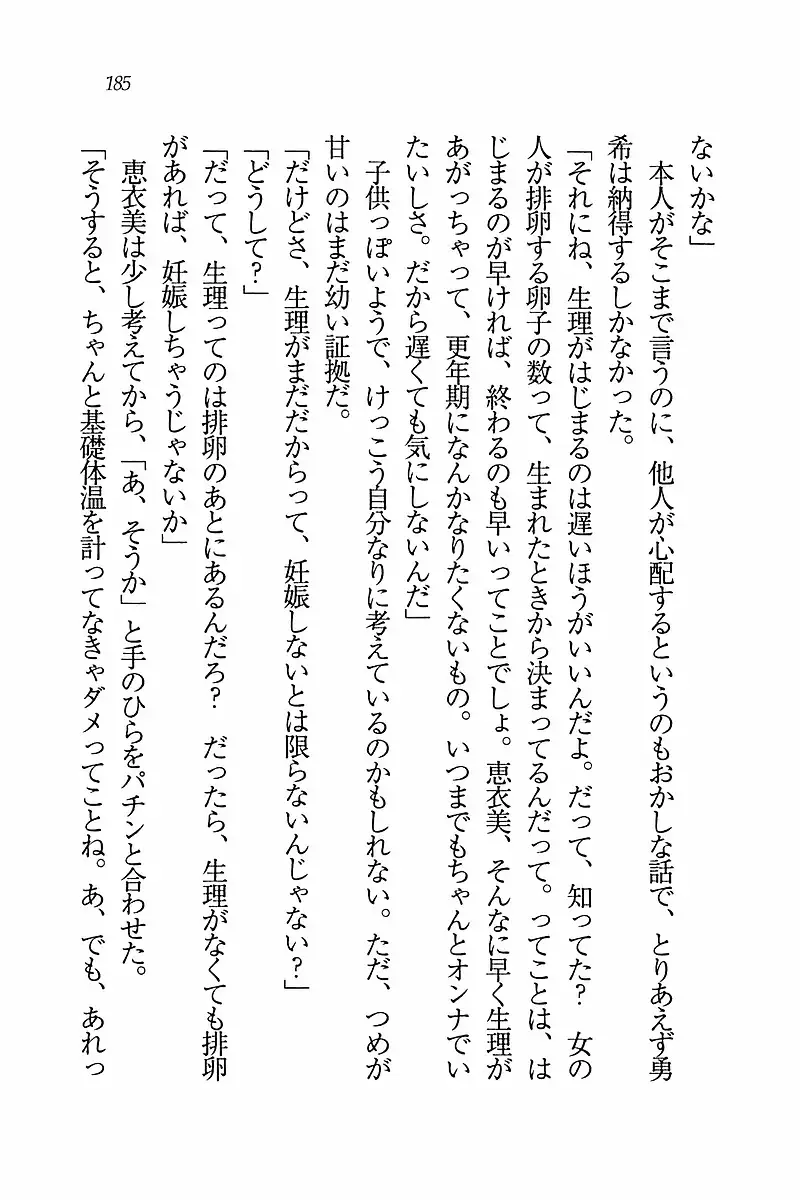 185
ないかな」
　本人がそこまで言うのに、他人が心配するというのもおかしな話で、とりあえず勇
希は納得するしかなかった。
「それにね、生理がはじまるのは遅いほうがいいんだよ。だって、知ってた？　女の
人が排卵する卵子の数って、生まれたときから決まってるんだって。ってことは、は
じまるのが早ければ、終わるのも早いってことでしょ。恵衣美、そんなに早く生理が
あがっちゃって、更年期になんかなりたくないもの。いつまでもちゃんとオンナでい
たいしさ。だから遅くても気にしないんだ」
　子供っぽいようで、けっこう自分なりに考えているのかもしれない。ただ、つめが
甘いのはまだ幼い証拠だ。
「だけどさ、生理がまだだからって、妊娠しないとは限らないんじゃない？」
「どうして？」
「だって、生理ってのは排卵のあとにあるんだろ？　だったら、生理がなくても排卵
があれば、妊娠しちゃうじゃないか」
　恵衣美は少し考えてから、「あ、そうか」と手のひらをパチンと合わせた。
「そうすると、ちゃんと基礎体温を計ってなきゃダメってことね。あ、でも、あれっ